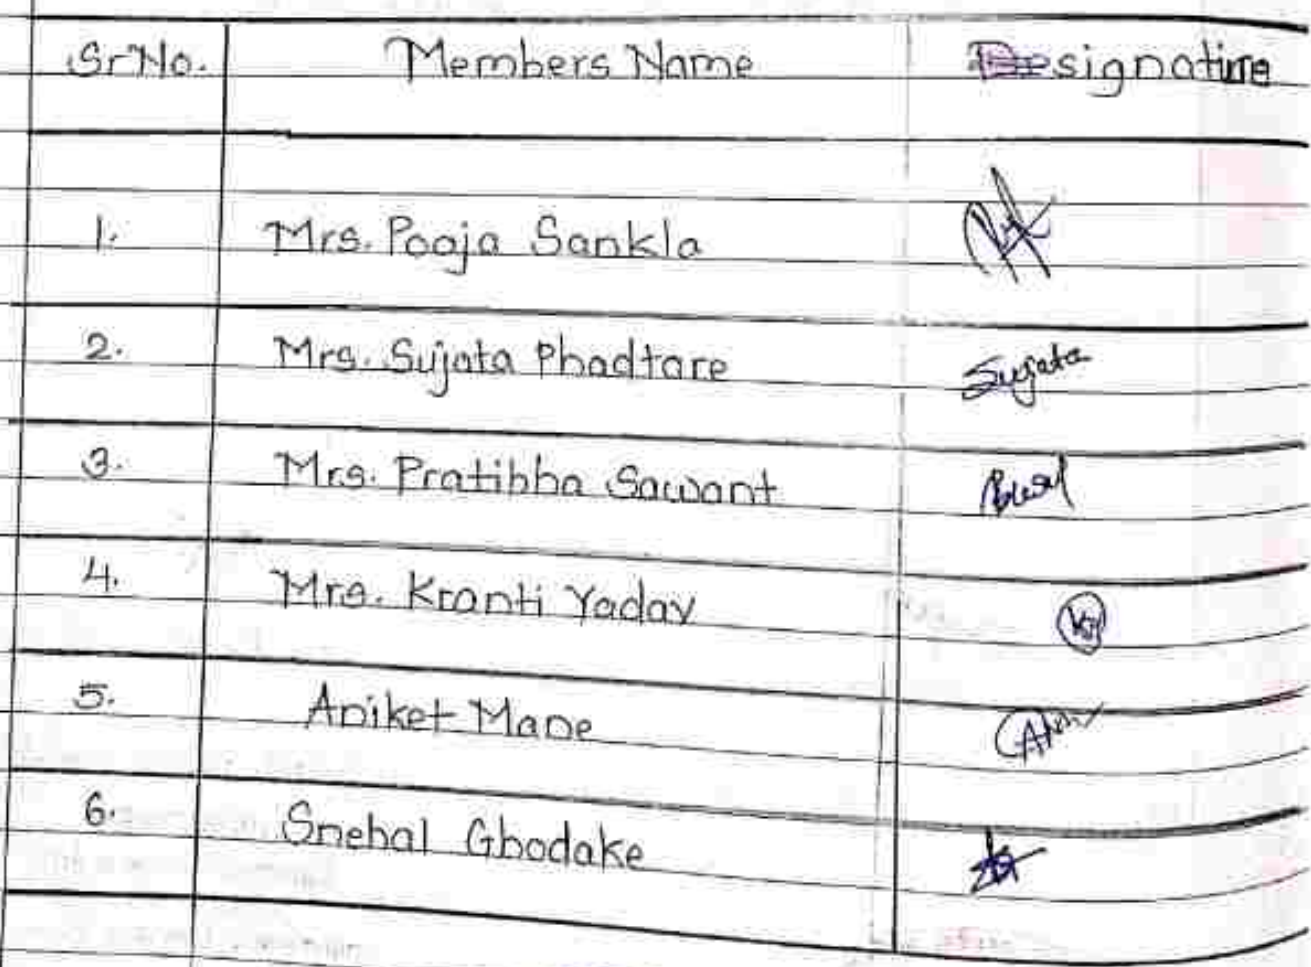 Sr No. Members Name Designature
1. Mrs. Pooja Sankla
2. Mrs. Sujata Phadtare Sujata
3. Mrs. Pratibha Sawant
4. Mrs. Kranti Yadav
5. Aniket Mane
6. Snehal Ghodake